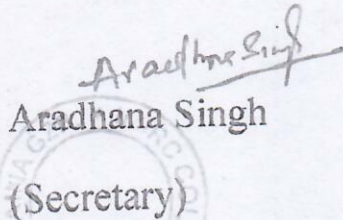 Aradhana Singh
Aradhana Singh
(Secretary)